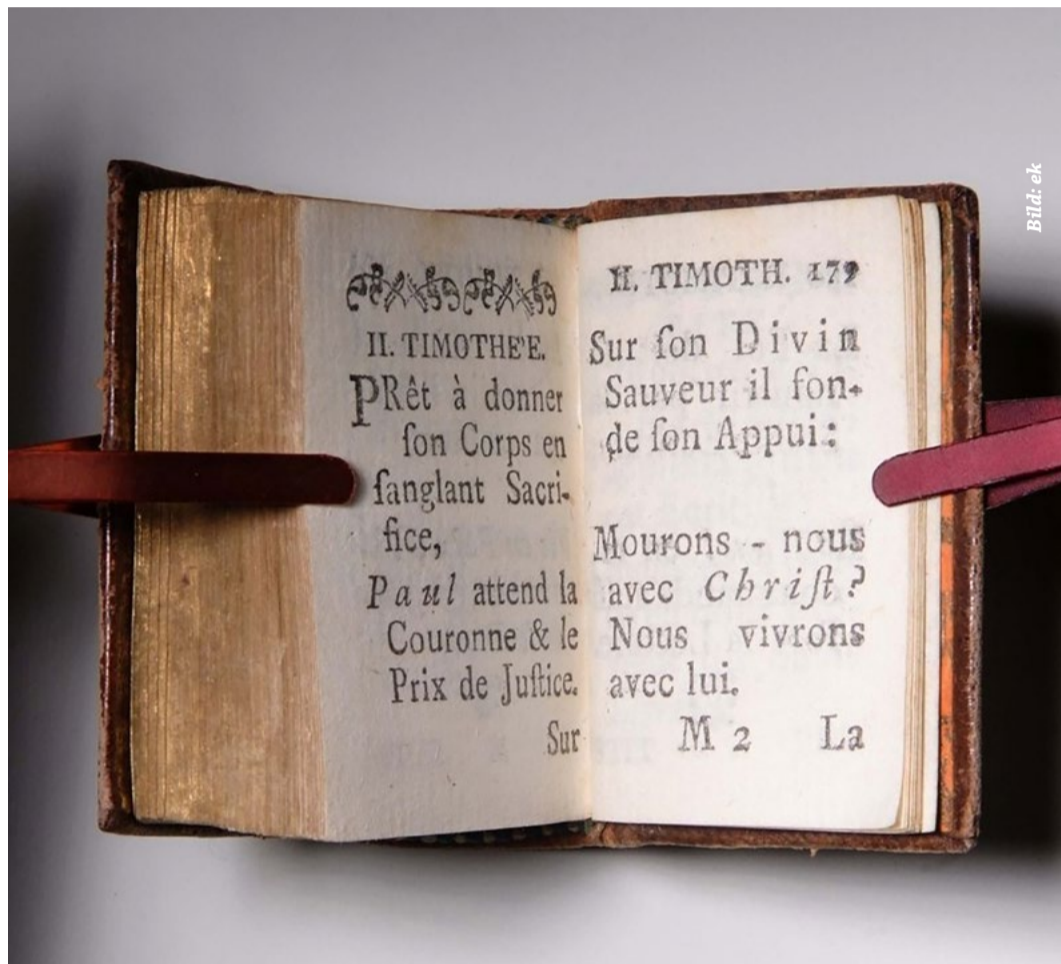 II. TIMOTHE'E.
PRêt à donner
ſon Corps en
ſanglant Sacri-
fice,
Paul attend la
Couronne & le
Prix de Juſtice.
Sur
II. TIMOTH. 179
Sur ſon Divin
Sauveur il fon-
de ſon Appui:
Mourons - nous
avec Chriſt?
Nous vivrons
avec lui.
M 2 La
Bild: ek